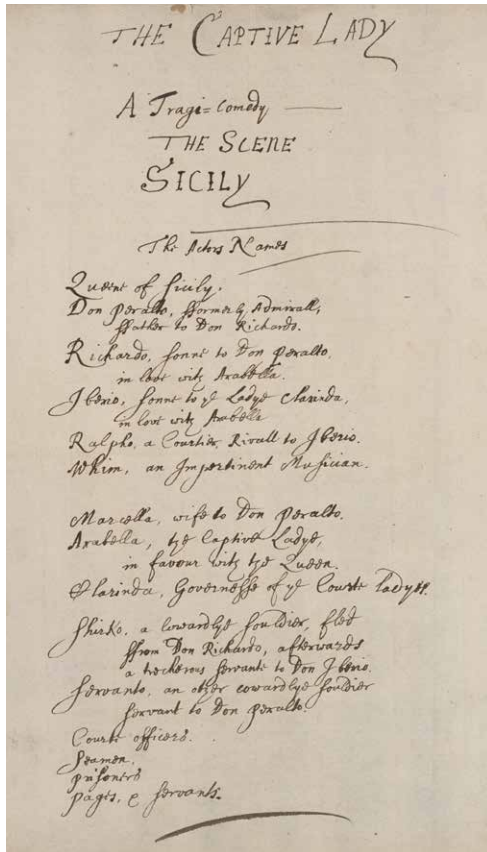 THE CAPTIVE LADY
A Tragi=comedy
THE SCENE
SICILY
The Actors Names
Queene of Sicily.
Don Peralto, fformerly Admirall,
ffather to Don Richardo.
Richardo, sonne to Don Peralto,
in love with Arabella.
Iberio, sonne to ye Ladye Clarinda,
in love with Arabella
Ralpho, a Courtier, Rivall to Iberio.
Whim, an Impertinent Musician.
Marcella, wife to Don Peralto.
Arabella, the Captive Ladye,
in favour with the Queen.
Clarinda, Governesse of ye Courte Ladyes.
Shirko, a cowardlye souldier, fled
ffrom Don Richardo, afterwards
a trecherous servante to Don Iberio.
Servanto, an other cowardlye souldier
servant to Don Peralto.
Courte officers.
Seamen.
prisoners
Pages, & servants.